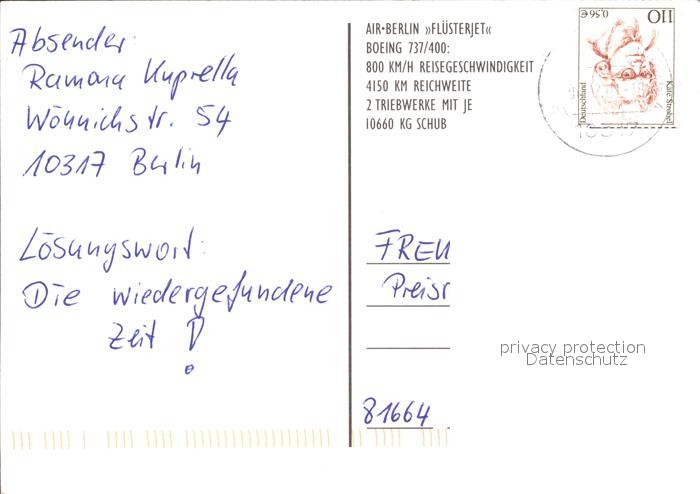 Absender:
Ramona Kuprella
Wönnichstr. 54
10317 Berlin
Lösungswort:
Die wiedergefundene
Zeit!
AIR-BERLIN »FLÜSTERJET«
BOEING 737/400:
800 KM/H REISEGESCHWINDIGKEIT
4150 KM REICHWEITE
2 TRIEBWERKE MIT JE
10660 KG SCHUB
110
0,56€
Deutschland
Käte Strobel
FREU
Preisr
81664
privacy protection
Datenschutz